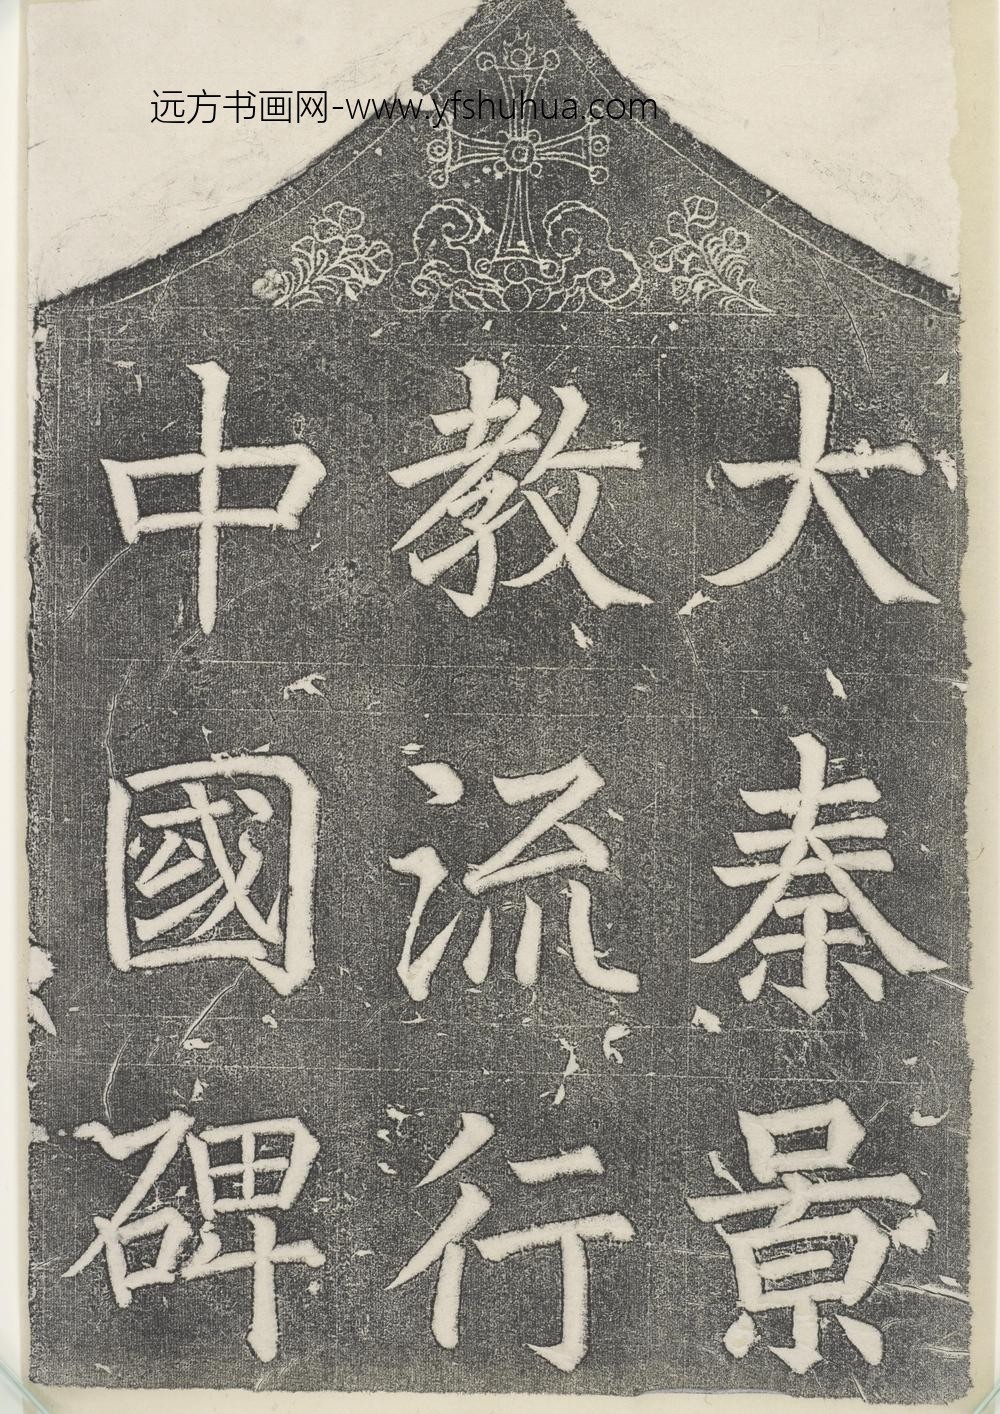 远方书画网-www.yfshuhua.com
大秦景
教流行
中國碑